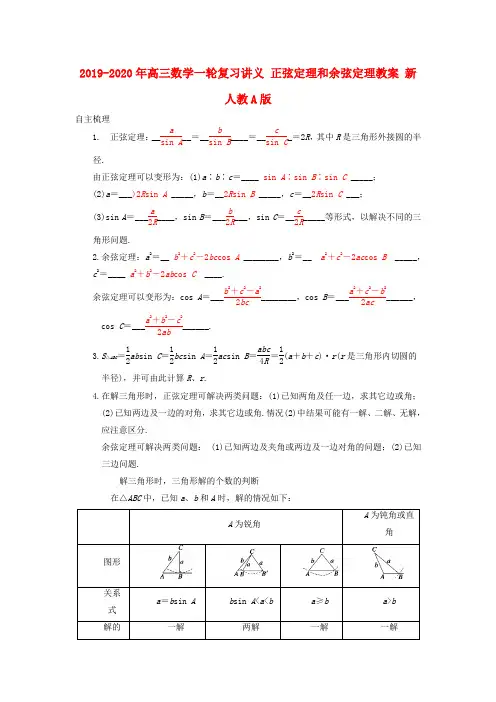 2019-2020年高三数学一轮复习讲义 正弦定理和余弦定理教案 新
人教A版
自主梳理
1. 正弦定理：__a/sin A__＝__b/sin B____＝__c/sin C_＝2R，其中R是三角形外接圆的半
径.
由正弦定理可以变形为：(1)a∶b∶c＝____ sin A∶sin B∶sin C _____；
(2)a＝___)2Rsin A _____，b＝__2Rsin B _____，c＝__2Rsin C ___；
(3)sin A＝___a/2R____，sin B＝___b/2R___，sin C＝__c/2R_____等形式，以解决不同的三
角形问题.
2.余弦定理：a²＝__ b²＋c²－2bccos A ________，b²＝__ a²＋c²－2accos B _____，
c²＝____ a²＋b²－2abcos C ____.
余弦定理可以变形为：cos A＝___(b²＋c²－a²)/2bc________，cos B＝___(a²＋c²－b²)/2ac______，
cos C＝___(a²＋b²－c²)/2ab______.
3.S△ABC＝1/2absin C＝1/2bcsin A＝1/2acsin B＝abc/4R＝1/2(a＋b＋c)·r(r是三角形内切圆的
半径)，并可由此计算R、r.
4.在解三角形时，正弦定理可解决两类问题：(1)已知两角及任一边，求其它边或角；
(2)已知两边及一边的对角，求其它边或角.情况(2)中结果可能有一解、二解、无解，
应注意区分.
余弦定理可解决两类问题： (1)已知两边及夹角或两边及一边对角的问题；(2)已知
三边问题.
解三角形时，三角形解的个数的判断
在△ABC中，已知a、b和A时，解的情况如下：
A为锐角 A为钝角或直
角
图形 C b a A B C b a a A B B′ C b a A B C b a A B
关系
式 a＝bsin A bsin A<a<b a≥b a>b
解的 一解 两解 一解 一解